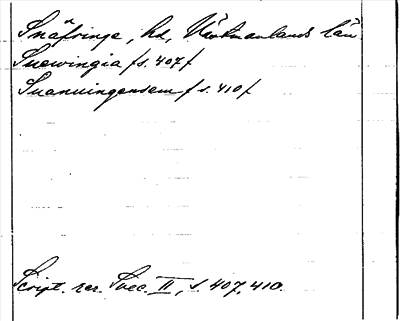 Snäfringe, hd, Västmanlands län
Sneuringia /s. 407/
Snanuingensem / s. 410/
Script. rer. Svec. II, s. 407, 410.